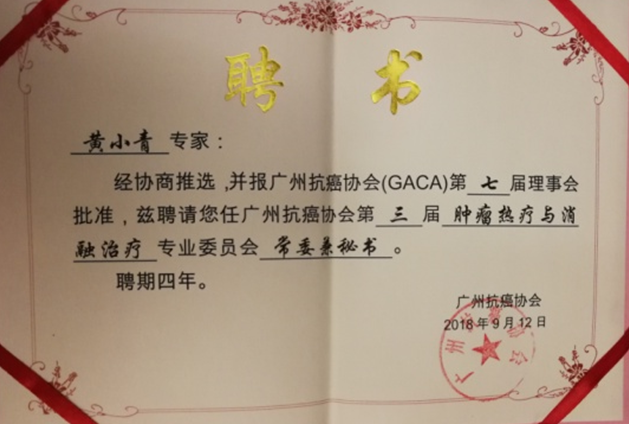 聘书
黄小青 专家：
经协商推选，并报广州抗癌协会(GACA)第 七 届理事会
批准，兹聘请您任广州抗癌协会第 三 届 肿瘤热疗与消
融治疗 专业委员会 常委兼秘书 。
聘期四年。
广州抗癌协会
2018年9月12日
广州抗癌协会